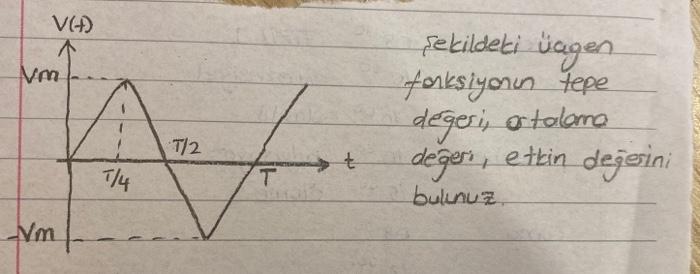 V(t)
Vm
T/2
t
T/4
T
-Vm
Şekildeki üçgen
fonksiyonun tepe
değeri, ortalama
değeri, etkin değerini
bulunuz.